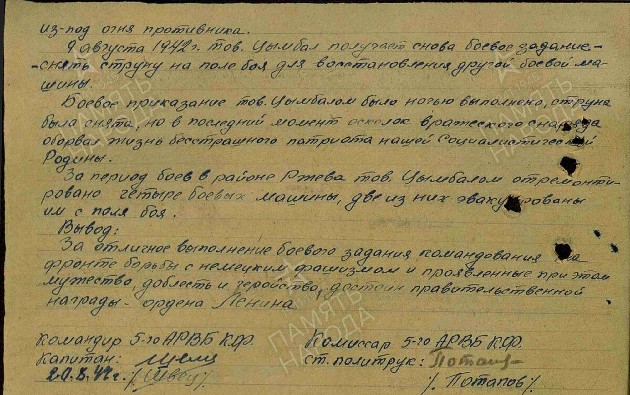 из-под огня противника.
9 августа 1942 г. тов. Цымбал получает снова боевое задание-
-снять струну на поле боя для восстановления другой боевой ма-
шины.
Боевое приказание тов. Цымбалом было ночью выполнено, струна
была снята, но в последний момент осколок вражеского снаряда
оборвал жизнь бесстрашного патриота нашей Социалистической
Родины.
За период боев в районе Ржева тов. Цымбалом отремонти-
ровано четыре боевых машины, две из них эвакуированы
им с поля боя.
Вывод:
За отличное выполнение боевого задания командования на
фронте борьбы с немецким фашизмом и проявленные при этом
мужество, доблесть и геройство, достоин правительственной
награды - ордена Ленина
Командир 5-го АРВБ К.Ф. Комиссар 5-го АРВБ К.Ф.
Капитан: ст. политрук:
20.8.42 г. /Швец/ /Потапов/
ПАМЯТЬ НАРОДА
ПАМЯТЬ НАРОДА
ПАМЯТЬ НАРОДА